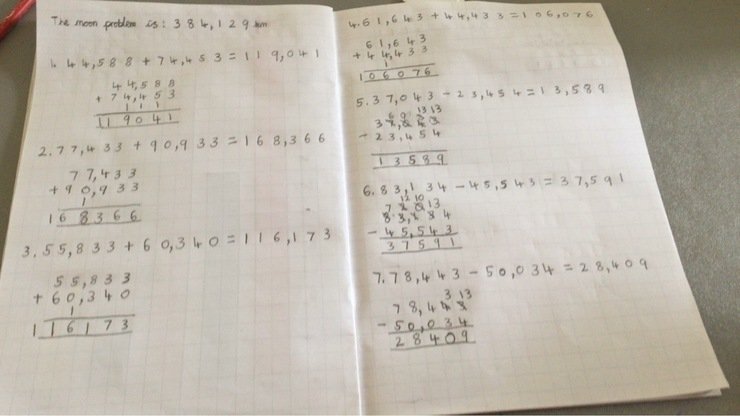 The moon problem is: 384,129 km
1. 44,588 + 74,453 = 119,041
44,588
+ 74,453
1 1 1
119041
2. 77,433 + 90,933 = 168,366
77,433
+90,933
1
168366
3. 55,833 + 60,340 = 116,173
55,833
+ 60,340
1
116173
4. 61,643 + 44,433 = 106,076
61,643
+ 44,433
1
106076
5. 37,043 - 23,454 = 13,589
6 9 13 13
37,043
- 23,454
13589
6. 83,134 - 45,543 = 37,591
12 10
7 2 0 13
83,134
- 45,543
37591
7. 78,443 - 50,034 = 28,409
3 13
78,443
- 50,034
28409